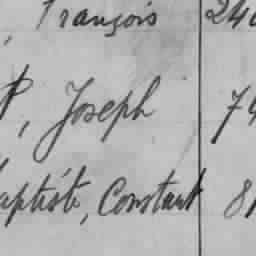 , François 240
, Joseph 74
aptiste, Constant 81